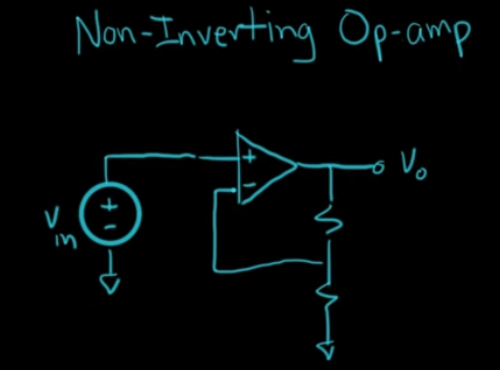 Non-Inverting Op-amp
+
-
Vo
+
-
Vin